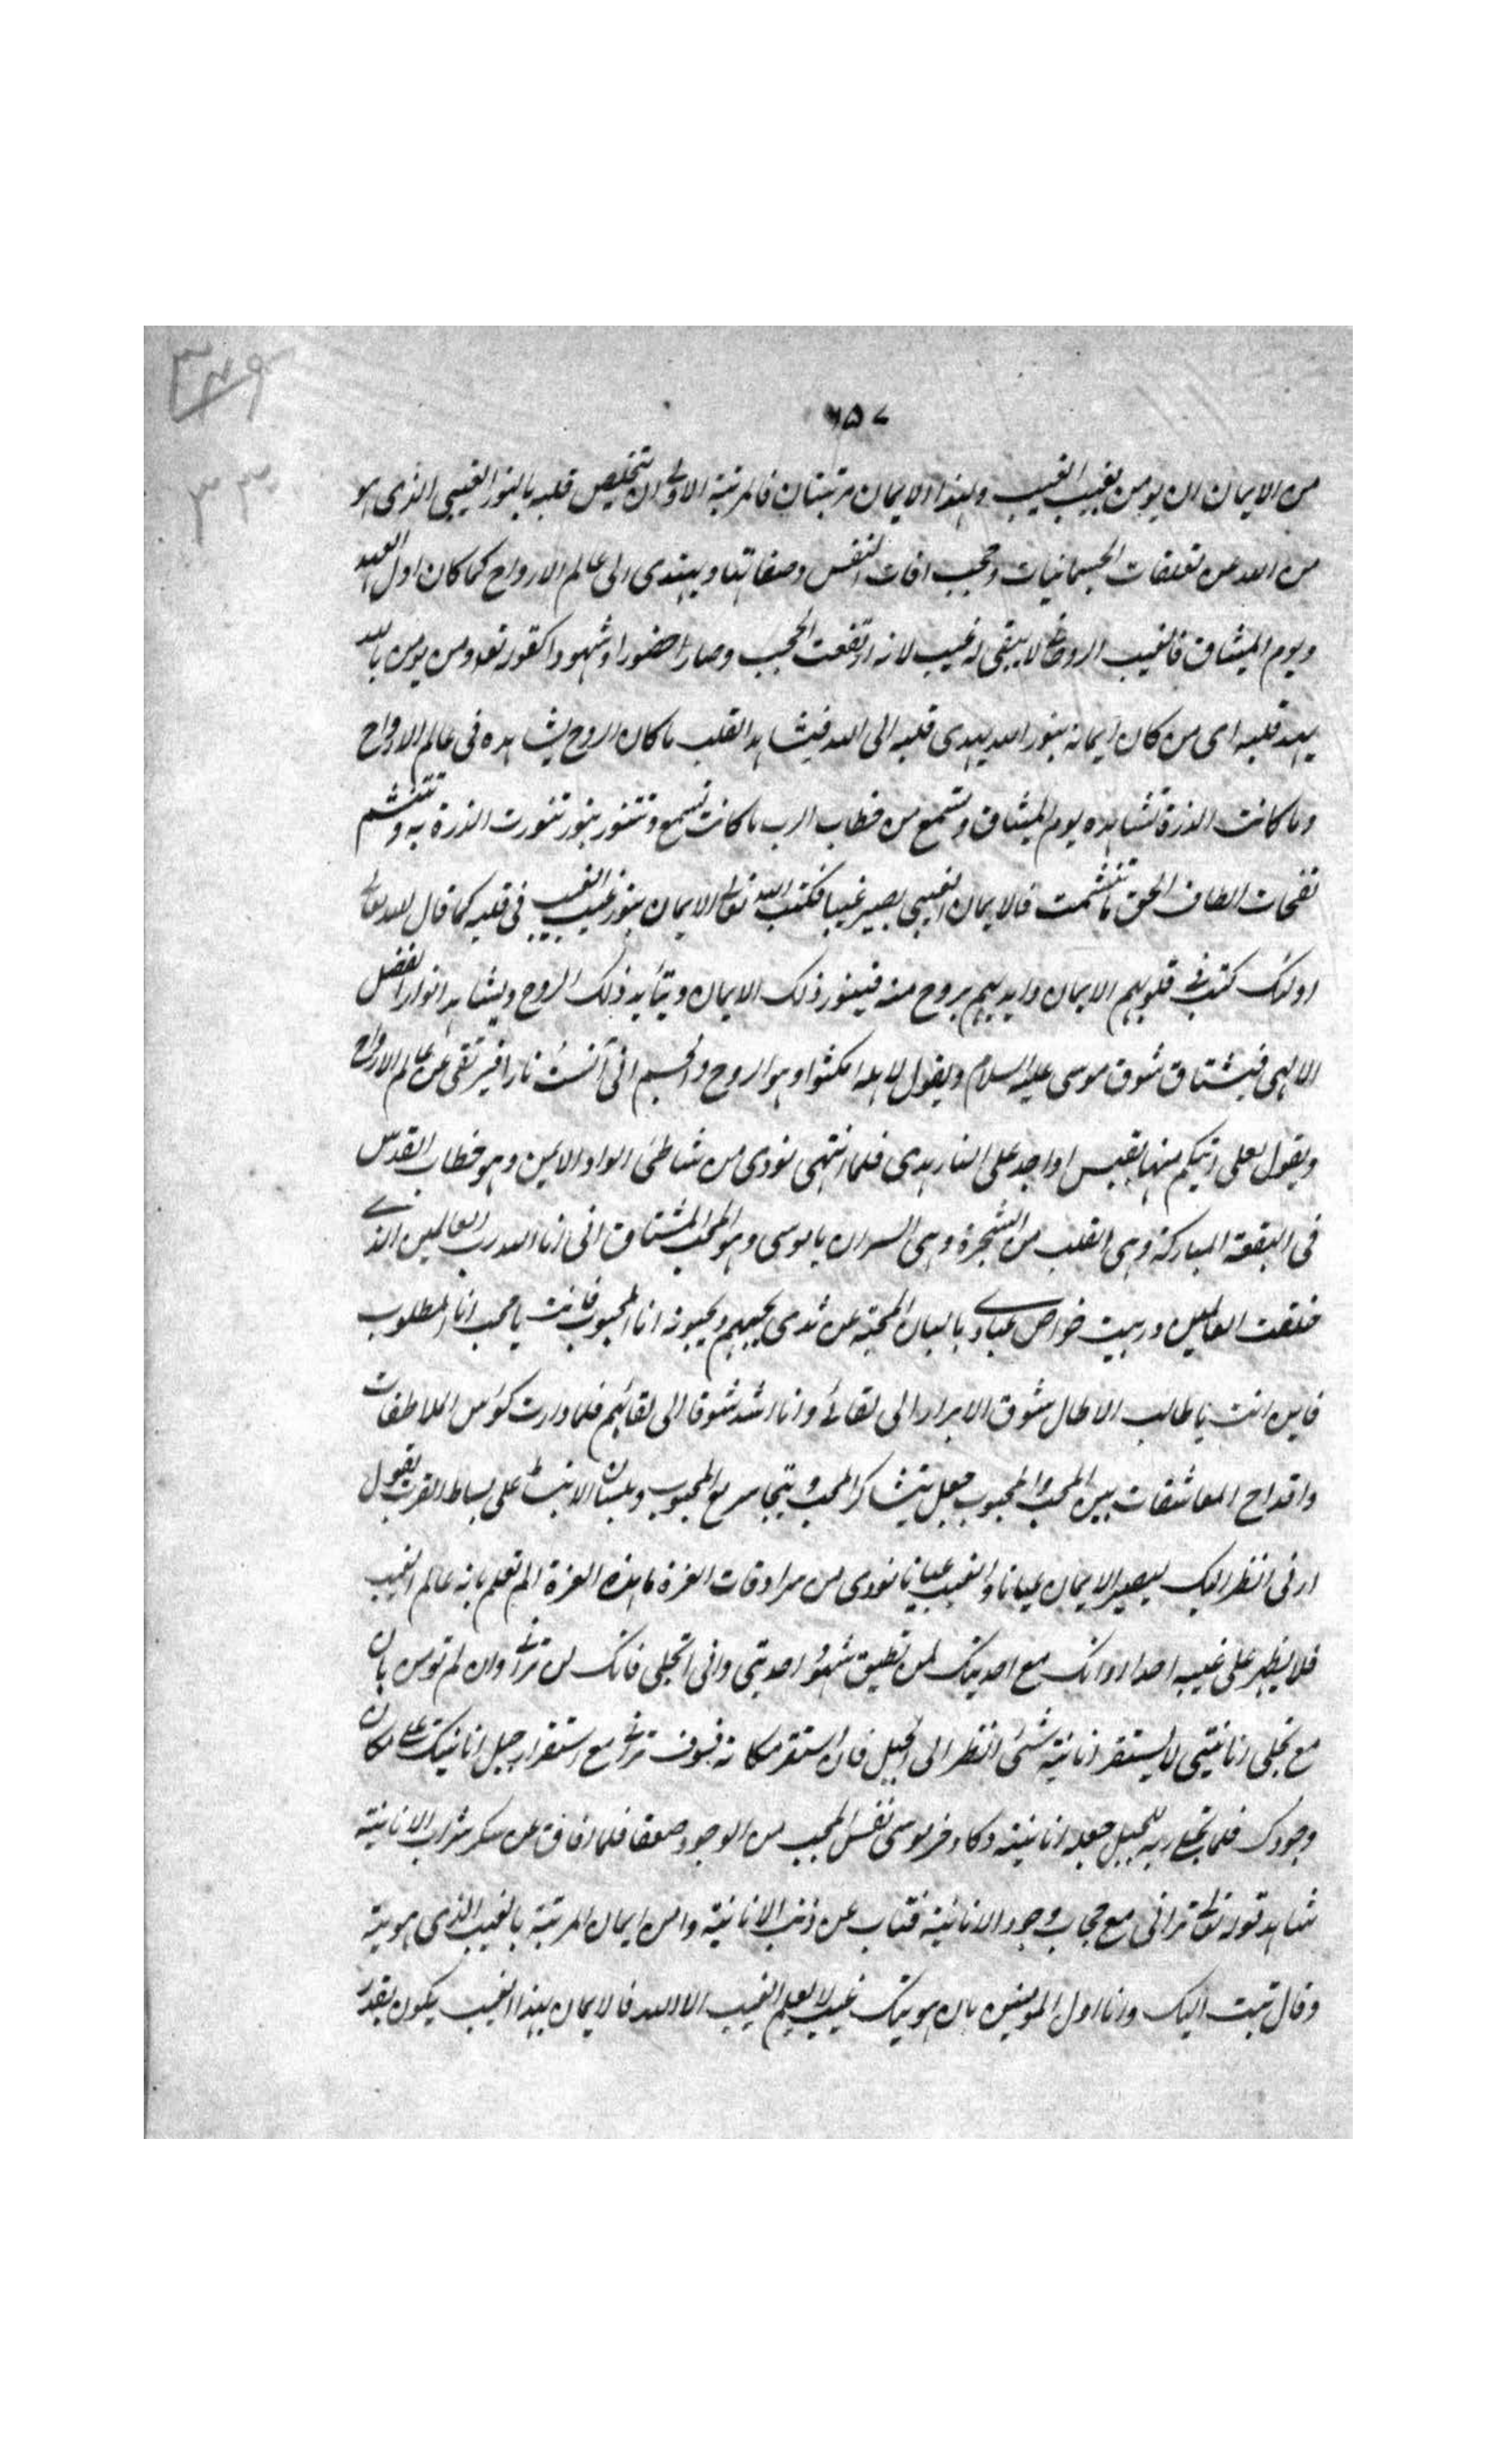 ٦٥٧
من الايمان ان يومن بغيب الغيب ولهذا الايمان مرتبتان فالمرتبة الاولى ان تتخلص قلبه بالنور الغيبي الذى هو
من الله عن تعلقات الجسمانيات وحجب افات النفس وصفاتها ويهتدى الى عالم الارواح كما كان اول العهد
ويوم الميثاق فالغيب الروحانى لا يبقى له غيب لانه ارتفعت الحجب وصار حضورا وشهودا كقوله تعالى ومن يومن بالله
يهد قلبه اى من كان ايمانه بنور الله يهدى قلبه الى الله فيشاهد القلب ما كان الروح يشاهده فى عالم الارواح
وما كانت الذرة تشاهده يوم الميثاق وتسمع من خطاب الرب ما كانت تسمع وتتنور بنور تنورت الذرة به وتتنشم
نفحات الطاف الحق ما تنشمت فالايمان الغيبى يصير غيبيا فكتب الله تعالى الايمان بنور غيب الغيب فى قلبه كما قال الله تعالى
اولئك كتب فى قلوبهم الايمان وايديهم بروح منه فيتنور ذلك الايمان ويتأيد ذلك الروح ويشاهد انوار الفضل
الالهى فيشتاق شوق موسى عليه السلام ويقول لاهله امكثوا وهو الروح والجسم انى آنست نارا فيرتقى عن عالم الارواح
ويقول لعلى اتيكم منها بقبس او اجد على النار هدى فلما انتهى نودى من شاطئ الواد الايمن وهو خطاب القدس
فى البقعة المباركة وهى القلب من الشجرة وهى السر ان يا موسى وهو المحب المشتاق انى انا الله رب العالمين الذى
خلقت العالمين وربيت خواص عبادى بالبان المحبة عن ثدى يحبهم ويحبونه انا المحبوب فانت يا محب انا المطلوب
فاين انت يا طالب الا طال شوق الابرار الى لقائى وانا اشد شوقا الى لقائهم فلما دارت كؤس الملاطفات
واقداح المعاشقات بين المحب والمحبوب جعل يتشاكر المحب ويتجاسر مع المحبوب وبلسان الانبساط على بساط القرب يقول
ارنى انظر اليك ليصير الايمان عيانا والغيب عيانا نودى من سرادقات العزة ما هذه الغرة الم تعلم بانه عالم الغيب
فلا يظهر على غيبه احدا وانك مع احديتك لن تطيق شهود احديتى وانى اتجلى فانك لن ترانى وان لم تومن بان
مع تجلى انانيتى لا يستقر انانية شئ انظر الى الجبل فان استقر مكانه فسوف ترانى مع استقرار جبل انانيتك على مكان
وجودك فلما تجلى ربه للجبل جعله انانيته دكا وخر موسى نفس المحب من الوجود صعقا فلما افاق عن سكر شراب الانانية
شاهد قوله لن ترانى مع حجاب وجود الانانية فتاب عن ذنب الانانية وامن ايمان المرتبة بالغيب الذى هويته
وقال تبت اليك وانا اول المومنين بان هويتك غيب لا يعلم الغيب الا الله فالايمان بهذا الغيب يكون بقدر